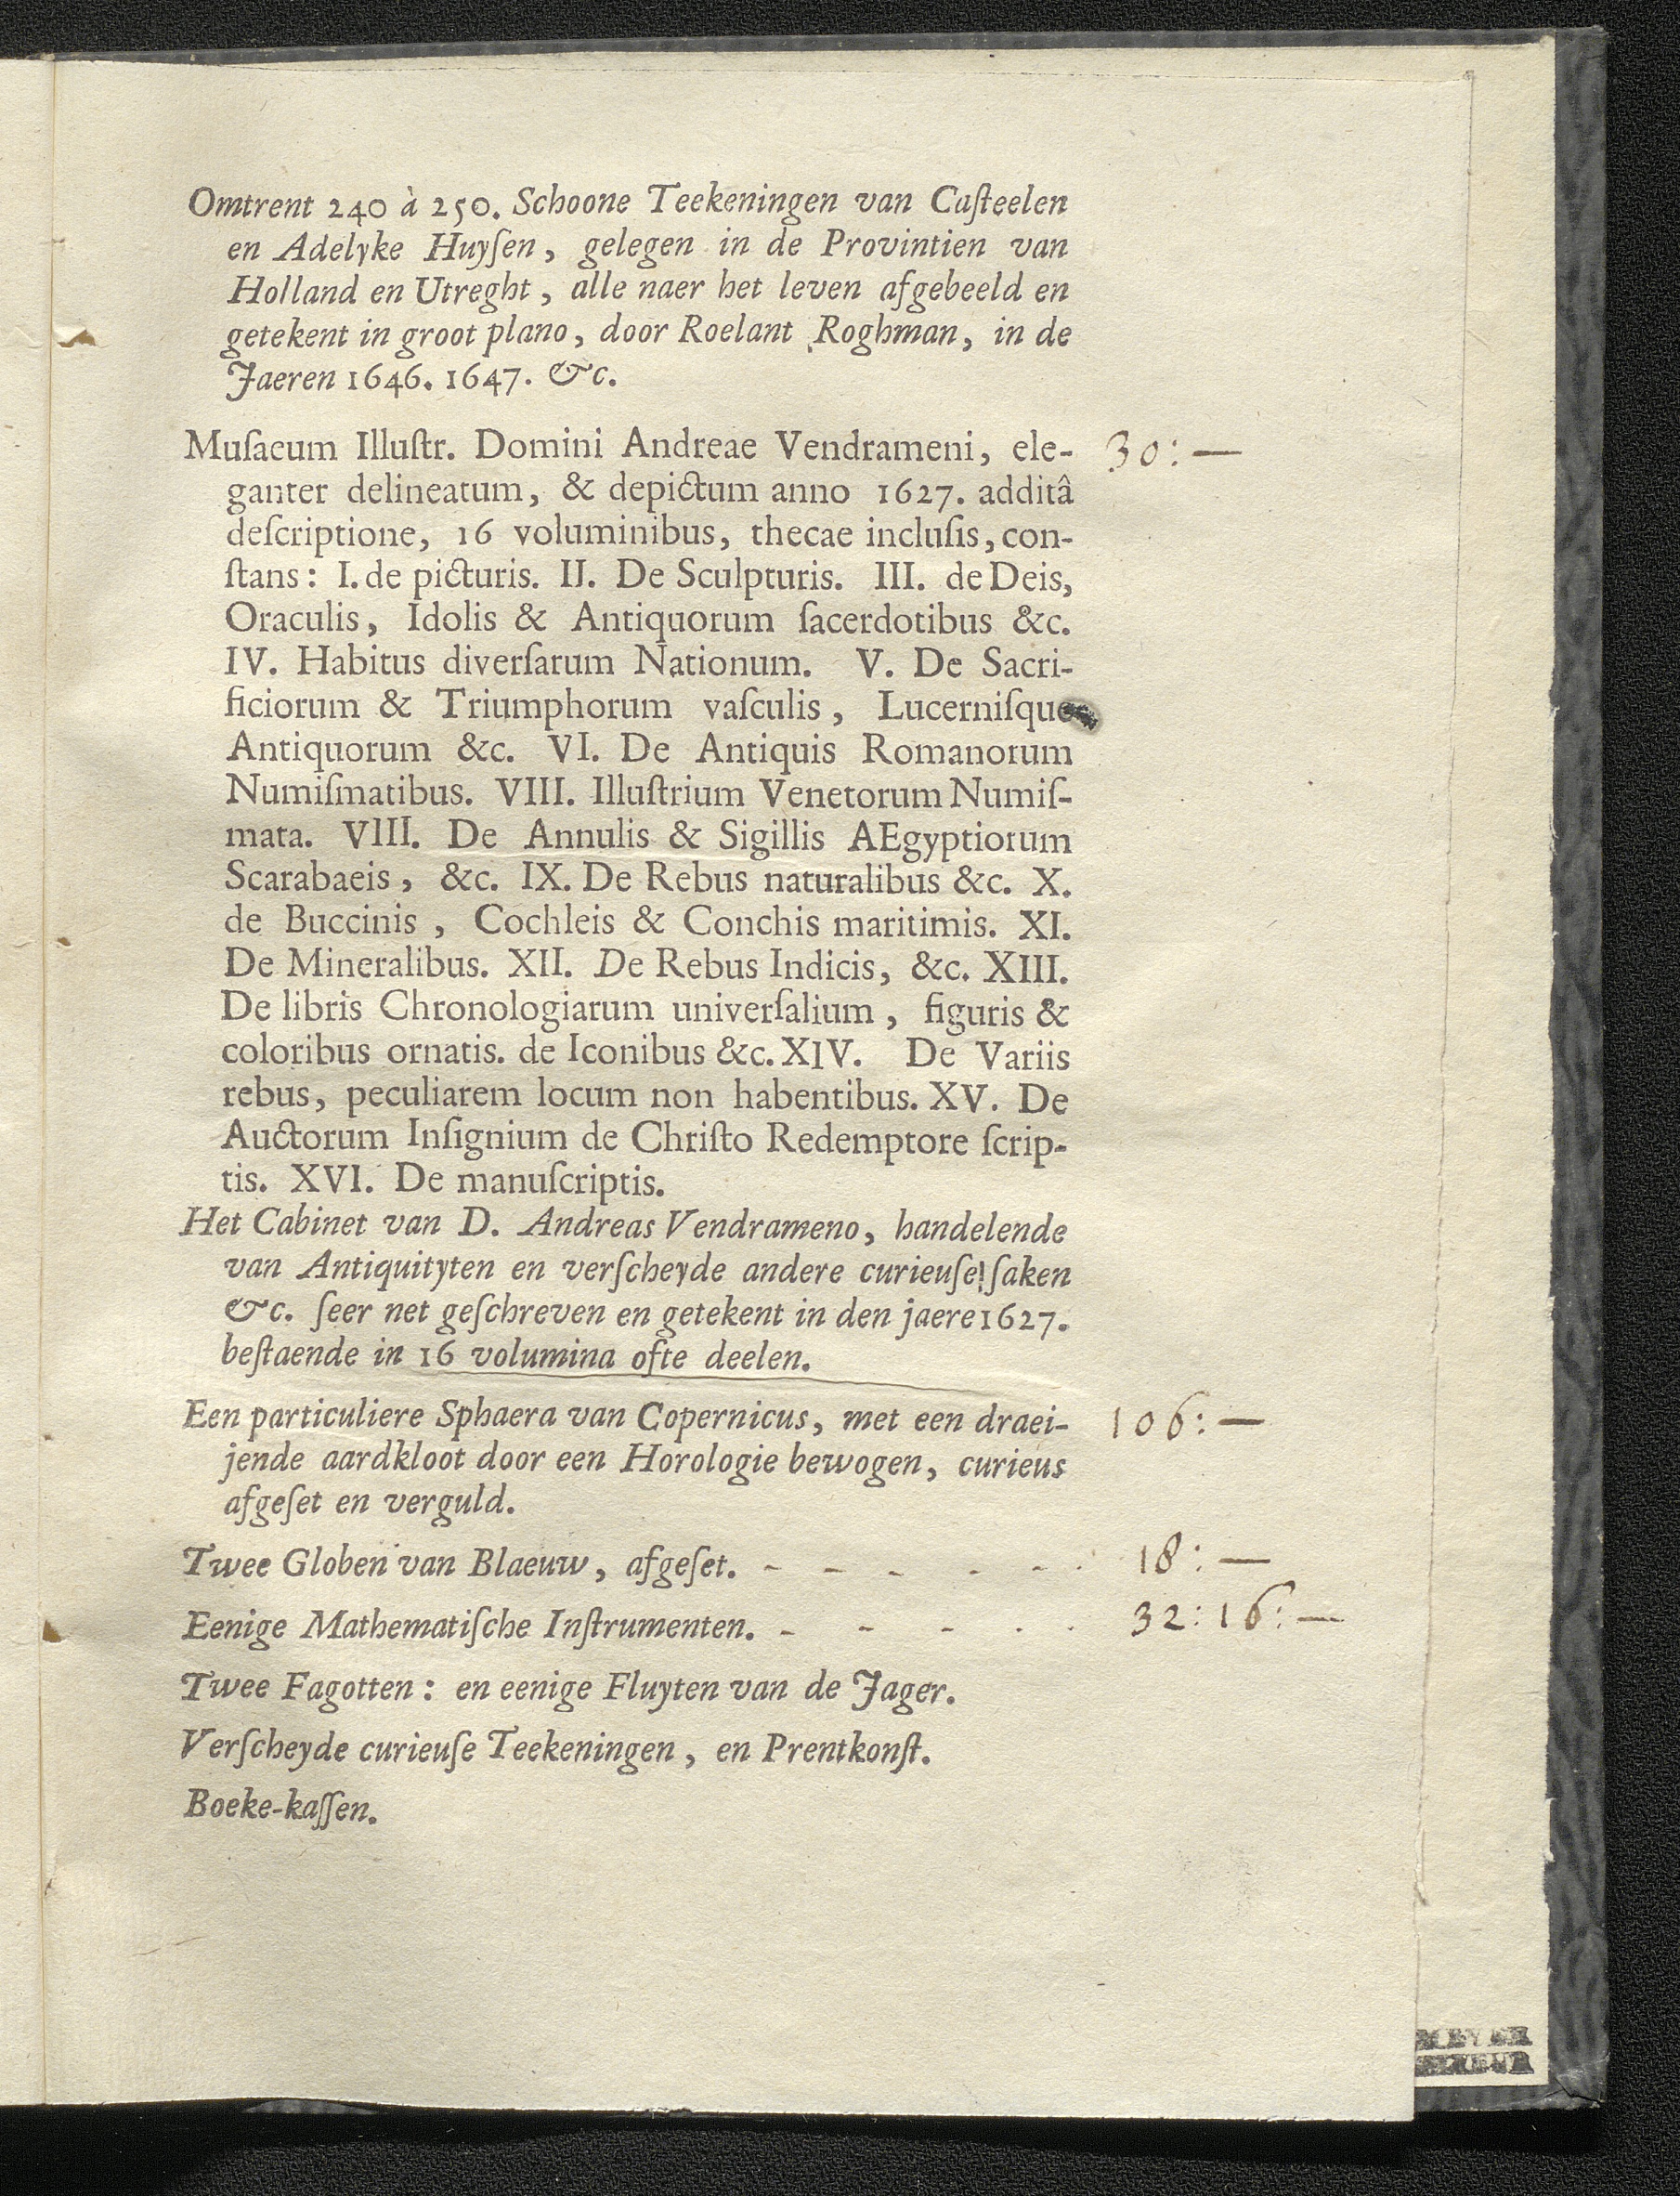 Omtrent 240 à 250. Schoone Teekeningen van Caſteelen
en Adelyke Huyſen, gelegen in de Provintien van
Holland en Utreght, alle naer het leven afgebeeld en
getekent in groot plano, door Roelant Roghman, in de
Jaeren 1646. 1647. &c.
Muſaeum Illuſtr. Domini Andreae Vendrameni, ele- 30:—
ganter delineatum, & depictum anno 1627. additâ
deſcriptione, 16 voluminibus, thecae incluſis, con-
ſtans: I. de picturis. II. De Sculpturis. III. de Deis,
Oraculis, Idolis & Antiquorum ſacerdotibus &c.
IV. Habitus diverſarum Nationum. V. De Sacri-
ficiorum & Triumphorum vaſculis, Lucerniſque
Antiquorum &c. VI. De Antiquis Romanorum
Numiſmatibus. VIII. Illuſtrium Venetorum Numiſ-
mata. VIII. De Annulis & Sigillis AEgyptiorum
Scarabaeis, &c. IX. De Rebus naturalibus &c. X.
de Buccinis, Cochleis & Conchis maritimis. XI.
De Mineralibus. XII. De Rebus Indicis, &c. XIII.
De libris Chronologiarum univerſalium, figuris &
coloribus ornatis. de Iconibus &c. XIV. De Variis
rebus, peculiarem locum non habentibus. XV. De
Auctorum Inſignium de Chriſto Redemptore ſcrip-
tis. XVI. De manuſcriptis.
Het Cabinet van D. Andreas Vendrameno, handelende
van Antiquityten en verſcheyde andere curieuſe ſaken
&c. ſeer net geſchreven en getekent in den jaere 1627.
beſtaende in 16 volumina ofte deelen.
Een particuliere Sphaera van Copernicus, met een draei- 106:—
jende aardkloot door een Horologie bewogen, curieus
afgeſet en verguld.
Twee Globen van Blaeuw, afgeſet. - - - - - - 18:—
Eenige Mathematiſche Inſtrumenten. - - - - - 32:16:—
Twee Fagotten: en eenige Fluyten van de Jager.
Verſcheyde curieuſe Teekeningen, en Prentkonſt.
Boeke-kaſſen.